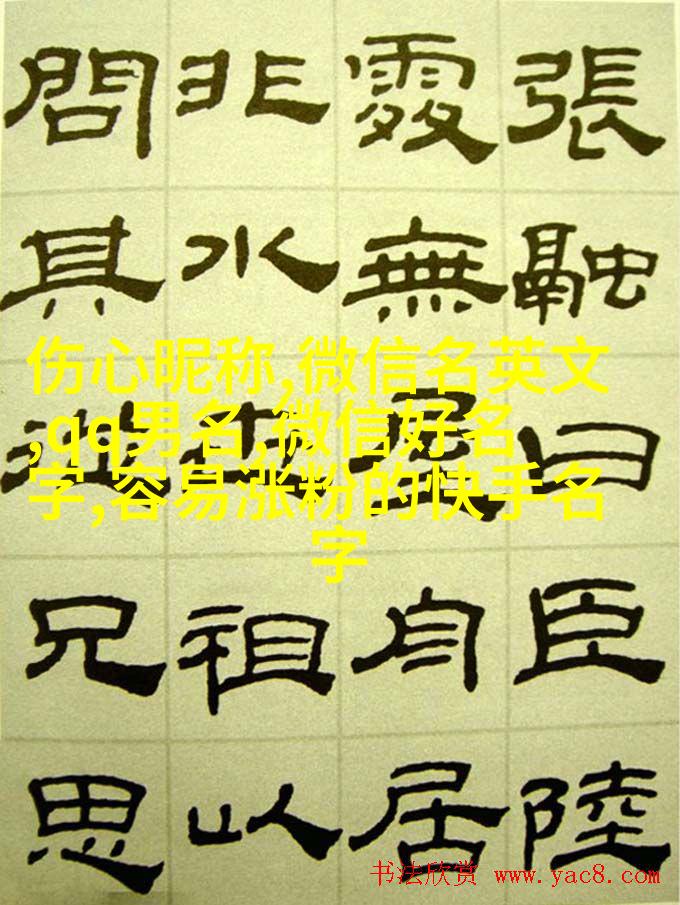 張融曰臣陸
處無屋舟居
非水祖以
問其兄思
伤心昵称,微信名英文
,qq男名,微信好名
字,容易涨粉的快手名
字
书法欣赏 www.yac8.com